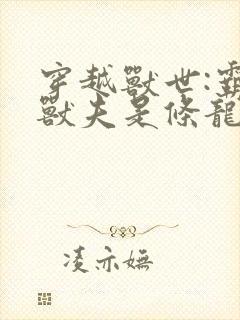 穿越獸世:霸
獸夫是條龍
凌亦嫵